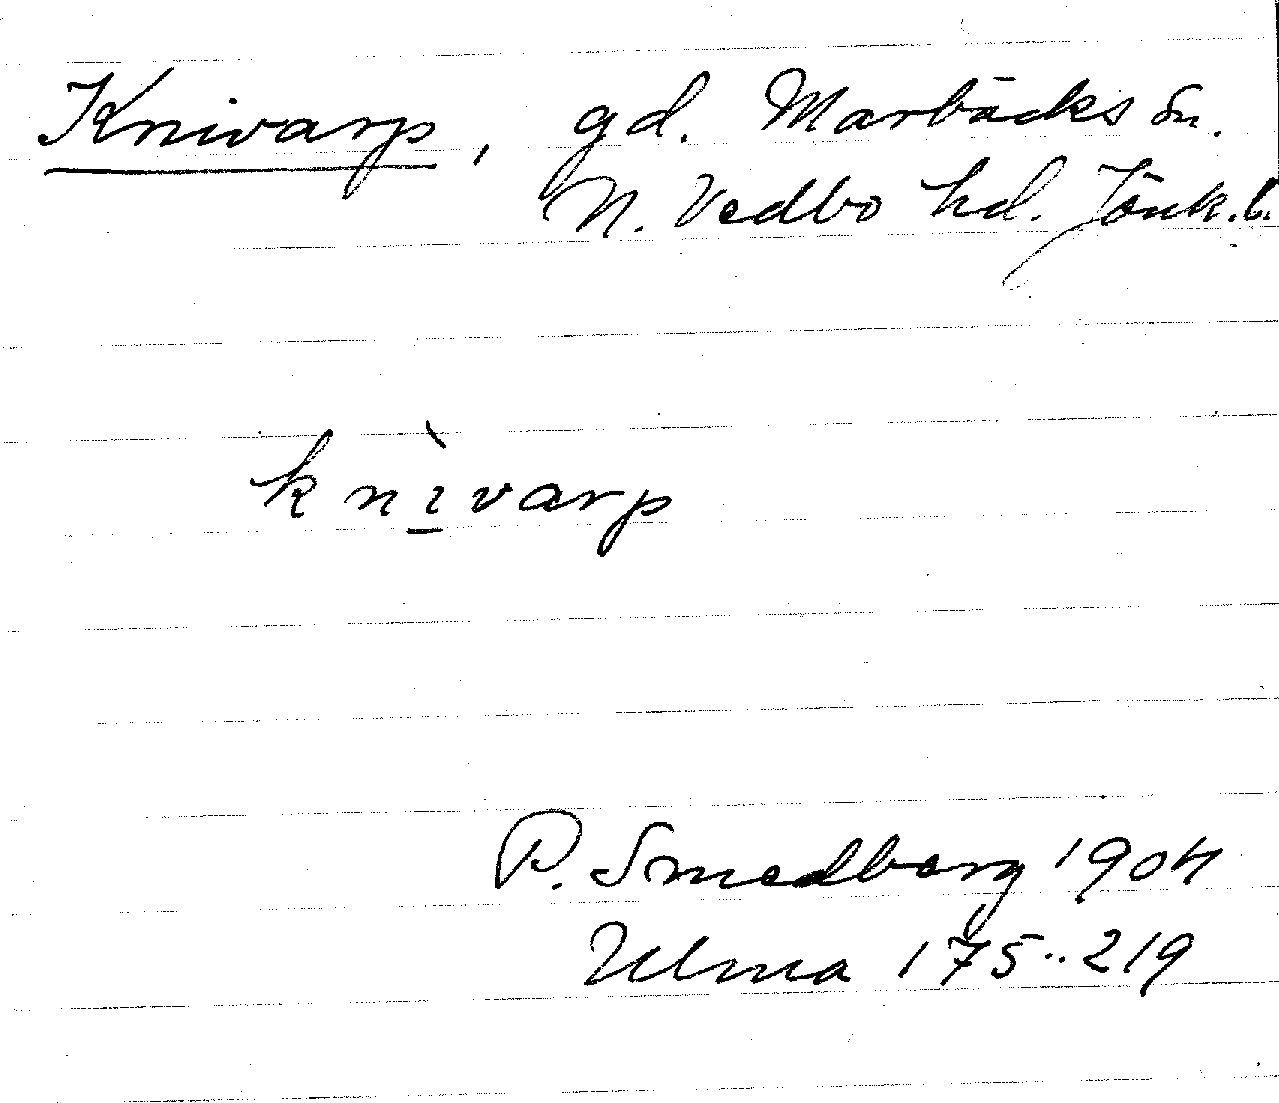 Knivarp, gd. Marbäcks sn.
N. Vedbo hd. Jönk. l.
knìvarp
P. Smedberg 1904
Ulma 175:219